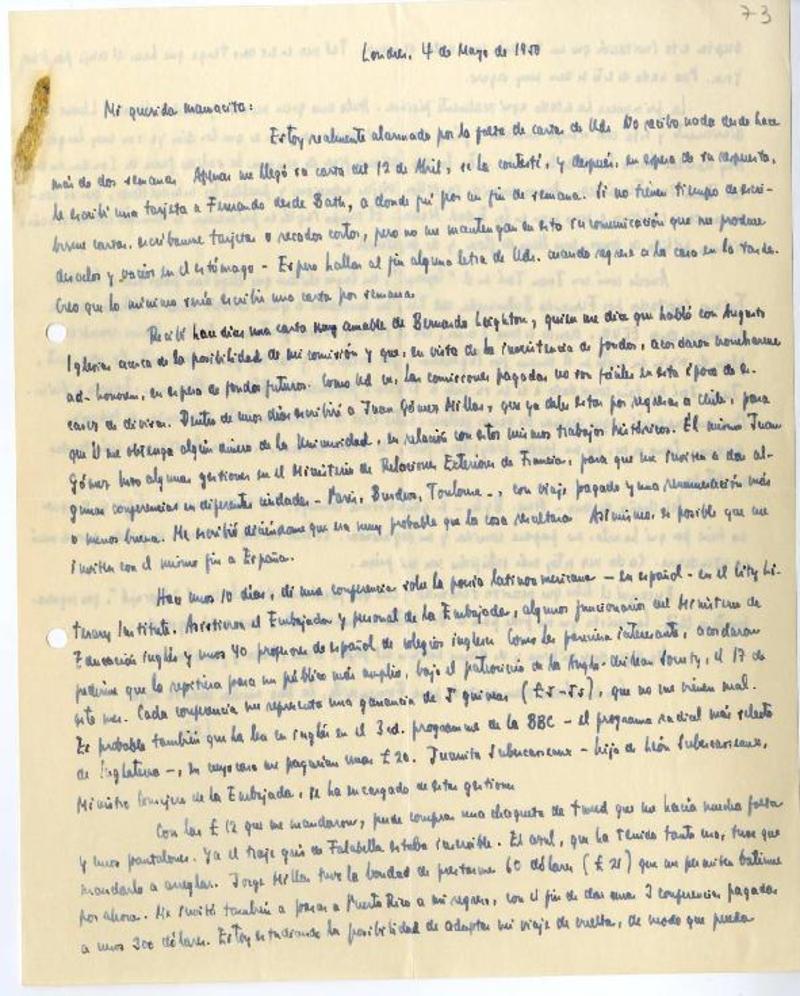 73
Londres, 4 de Mayo de 1950
Mi querida mamacita:
Estoy realmente alarmado por la falta de cartas de Uds. No recibo nada desde hace
más de dos semanas. Apenas me llegó su carta del 12 de Abril, se la contesté, y después, en espera de su respuesta,
le escribí una tarjeta a Fernando desde Bath, a donde fuí por un fin de semana. Si no tienen tiempo de escri-
birme cartas, escríbanme tarjetas o recados cortos, pero no me mantengan en esta incomunicación que me produce
desvelos y vacíos en el estómago - Espero hallar al fin alguna letra de Uds. cuando regrese a la casa en la tarde.
Creo que lo mínimo sería escribir una carta por semana.
Recibí hace días una carta muy amable de Bernardo Leighton, quien me dice que habló con Augusto
Iglesias acerca de la posibilidad de mi comisión y que, en vista de la inexistencia de fondos, acordaron nombrarme
ad-honorem, en espera de fondos futuros. Como Ud ve, las comisiones pagadas no son fáciles en esta época de es-
casez de divisas. Dentro de unos días escribiré a Juan Gómez Millas, que ya debe estar por regresar a Chile, para
que él me obtenga algún dinero de la Universidad, en relación con estos mismos trabajos históricos. El mismo Juan
Gómez hizo algunas gestiones en el Ministerio de Relaciones Exteriores de Francia, para que me inviten a dar al-
gunas conferencias en diferentes ciudades - París, Burdeos, Toulouse -, con viaje pagado y una remuneración más
o menos buena. Me escribió diciéndome que era muy probable que la cosa resultara. Asimismo, es posible que me
inviten con el mismo fin a España.
Hace unos 10 días, dí una conferencia sobre la poesía latinoamericana - en español - en el City Li-
terary Institute. Asistieron el Embajador y personal de la Embajada, algunos funcionarios del Ministerio de
Educación inglés y unos 40 profesores de español de colegios ingleses. Como les pareciera interesante, acordaron
pedirme que la repitiera para un público más amplio, bajo el patrocinio de la Anglo-Chilean Society, el 17 de
este mes. Cada conferencia me representa una ganancia de 5 guineas (£5-5s), que no me vienen mal.
Es probable también que la lea en inglés en el 3rd. programme de la BBC - el programa radial más selecto
de Inglaterra -, en cuyo caso me pagarían unas £ 20. Juanita Subercaseaux - hija de León Subercaseaux,
Ministro Consejero de la Embajada, se ha encargado de estas gestiones.
Con las £ 12 que me mandaron, pude comprar una chaqueta de tweed que me hacía mucha falta
y unos pantalones. Ya el traje gris de Falabella estaba inservible. El azul, que ha tenido tanto uso, tuve que
mandarlo a arreglar. Jorge Millas tuvo la bondad de prestarme 60 dólares (£ 21) que me permiten batirme
por ahora. Me invitó también a pasar a Puerto Rico a mi regreso, con el fin de dar unas 3 conferencias pagadas
a unos 200 dólares. Estoy estudiando la posibilidad de adaptar mi viaje de vuelta, de modo que pueda